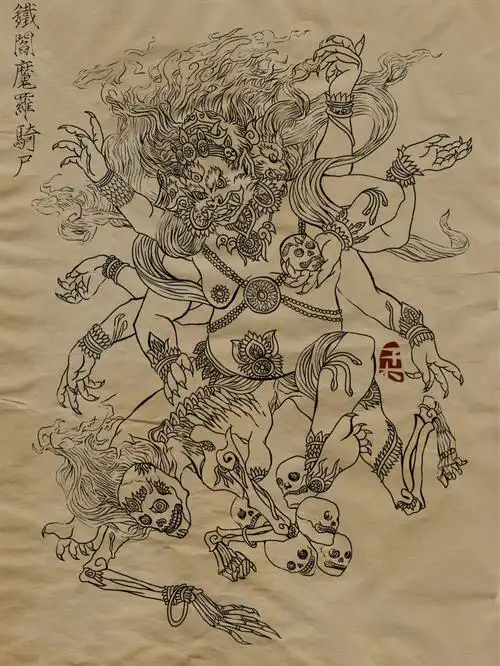 鐵閻魔羅騎尸